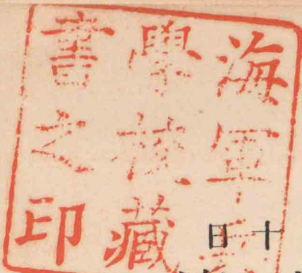 海軍
學校藏
書之印
十
日